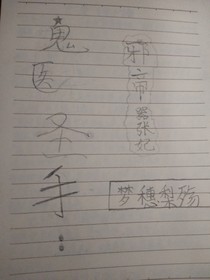 鬼医圣手：
邪帝嚣张妃
梦穗梨殇